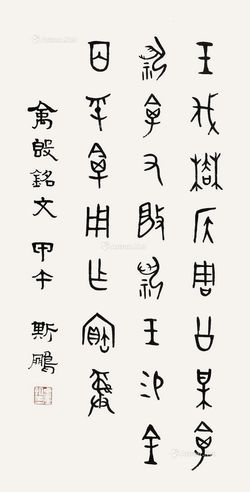 王伐侯周公某禽
祝禽又敐祝王易金
百寽禽用乍寶彝
禽𣪘銘文 甲午 斯鵬